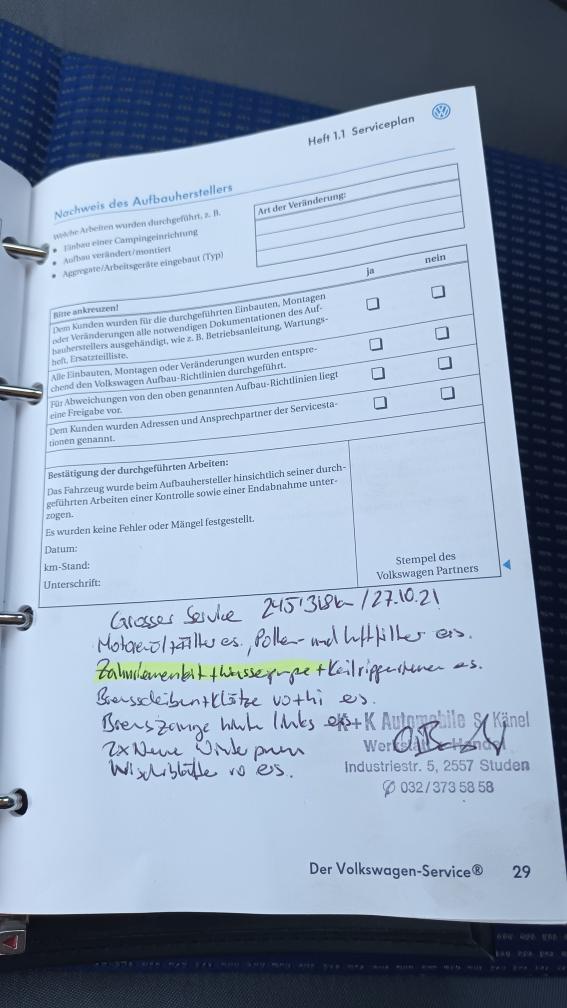 Heft 1.1 Serviceplan
Nachweis des Aufbauherstellers
Welche Arbeiten wurden durchgeführt, z. B.
• Einbau einer Campingeinrichtung
• Aufbau verändert/montiert
• Aggregate/Arbeitsgeräte eingebaut (Typ)
Art der Veränderung:
Bitte ankreuzen!
ja
nein
Dem Kunden wurden für die durchgeführten Einbauten, Montagen
oder Veränderungen alle notwendigen Dokumentationen des Auf-
bauherstellers ausgehändigt, wie z. B. Betriebsanleitung, Wartungs-
heft, Ersatzteilliste.
Alle Einbauten, Montagen oder Veränderungen wurden entspre-
chend den Volkswagen Aufbau-Richtlinien durchgeführt.
Für Abweichungen von den oben genannten Aufbau-Richtlinien liegt
eine Freigabe vor.
Dem Kunden wurden Adressen und Ansprechpartner der Servicesta-
tionen genannt.
Bestätigung der durchgeführten Arbeiten:
Das Fahrzeug wurde beim Aufbauhersteller hinsichtlich seiner durch-
geführten Arbeiten einer Kontrolle sowie einer Endabnahme unter-
zogen.
Es wurden keine Fehler oder Mängel festgestellt.
Datum:
km-Stand:
Unterschrift:
Stempel des
Volkswagen Partners
Grosser Service 245'318km / 27.10.21
Motoröl + Filter es., Pollen- und Luftfilter es.
Zahnriemenkit + Wasserpumpe + Keilrippenriemen es.
Bremsscheiben + Klötze vo + hi es.
Bremszange hinten links es.
2x Neue
Wischblätter vo es.
K+K Automobile S. Känel
Industriestr. 5, 2557 Studen
032/373 58 58
Der Volkswagen-Service® 29